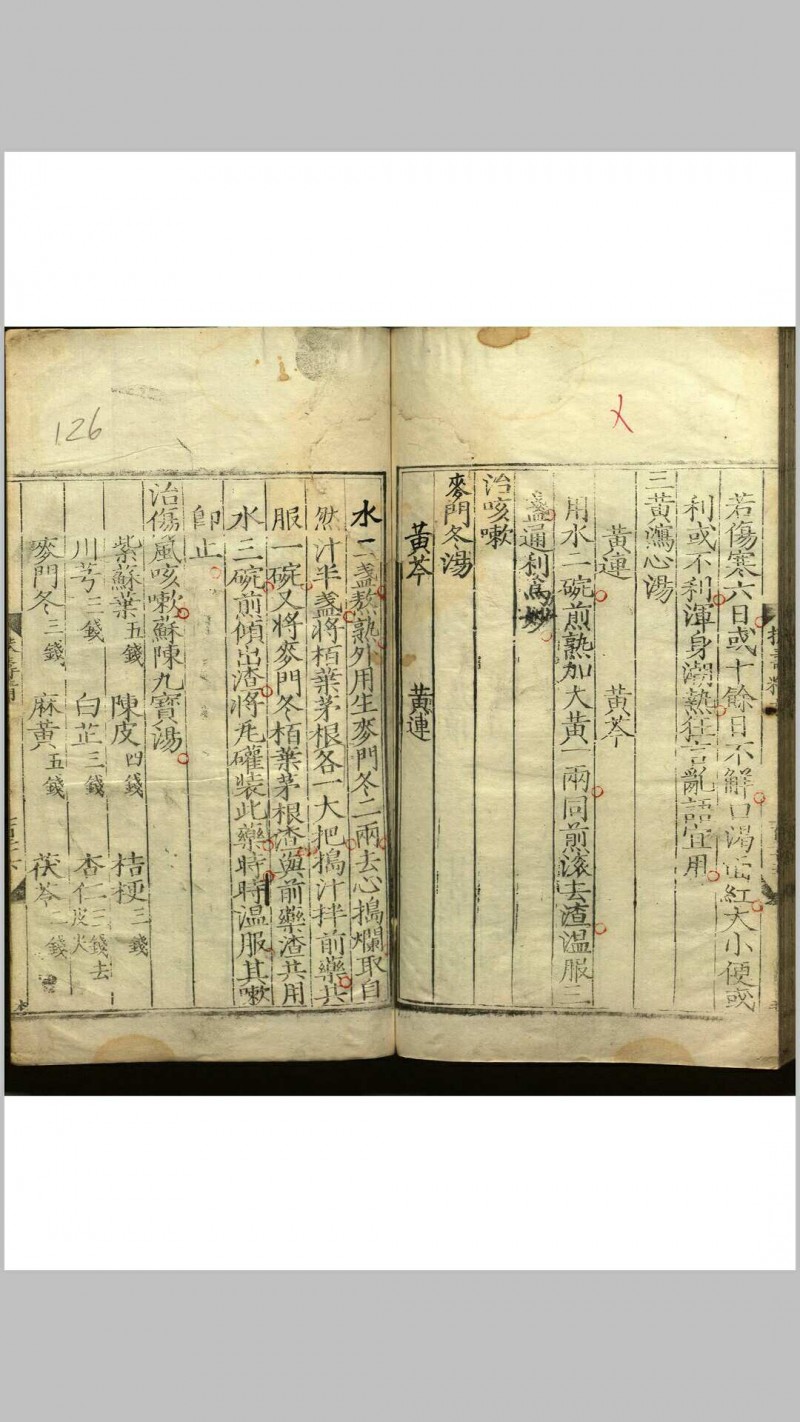 若傷寒六日或十餘日不解口渴面紅大小便或
利或不利渾身潮熱狂言亂語宜用
三黃瀉心湯
黃連 黃芩
用水二碗煎熟加大黃一兩同煎滚去渣溫服三
盞通利爲妙
治咳嗽
麥門冬湯
黃芩 黃連
水二盞熬熟外用生麥門冬二兩去心搗爛取自
然汁半盞將栢葉茅根各一大把搗汁拌前藥共
服一碗又將麥門冬栢葉茅根渣與前藥渣共用
水三碗煎傾出渣將瓦礶装此藥時時溫服其嗽
卽止
治傷風咳嗽蘇陳九寶湯
紫蘇葉五錢 陳皮四錢 桔梗三錢
川芎三錢 白芷三錢 杏仁三錢去皮尖
麥門冬三錢 麻黃五錢 茯苓二錢
126